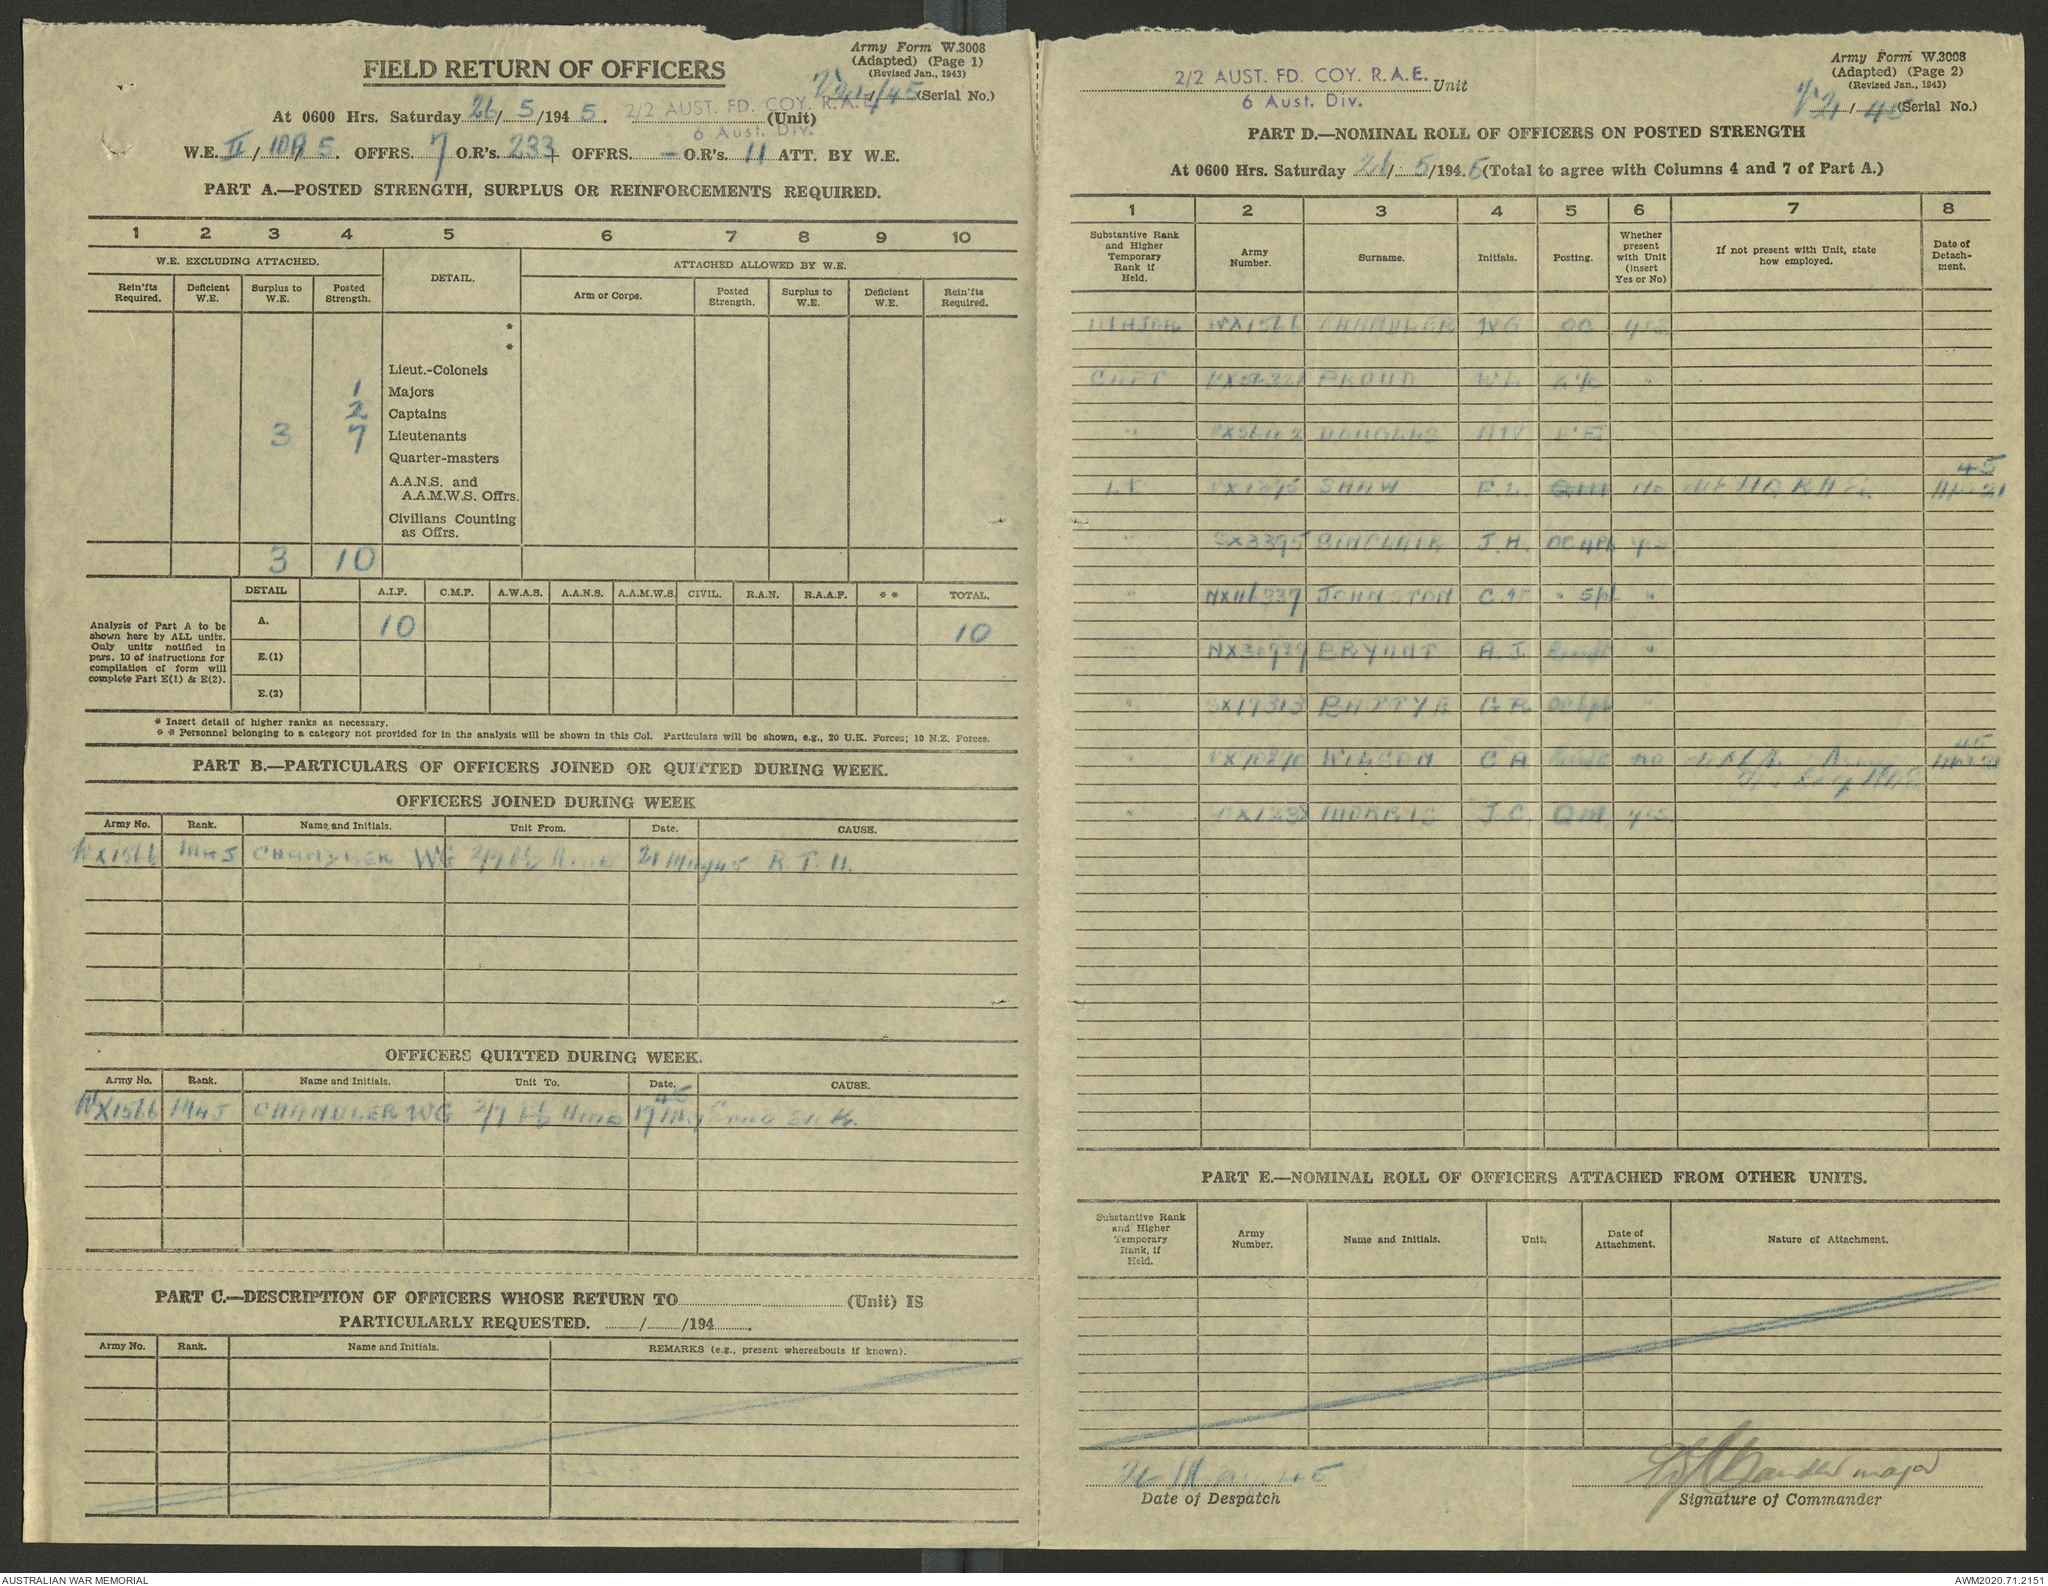 Army Form W.3008
(Adapted) (Page 1)
(Revised Jan., 1943)
FIELD RETURN OF OFFICERS
21/45 (Serial No.)
At 0600 Hrs. Saturday 26/5/1945. 2/2 AUST. FD. COY. R.A.E. (Unit)
6 Aust. Div.
W.E. II/10A/5. OFFRS. 7 O.R's. 233 + OFFRS. - O.R's. 11 ATT. BY W.E.
PART A.—POSTED STRENGTH, SURPLUS OR REINFORCEMENTS REQUIRED.
1 2 3 4 5 6 7 8 9 10
W.E. EXCLUDING ATTACHED. DETAIL. ATTACHED ALLOWED BY W.E.
Rein'fts Required. Deficient W.E. Surplus to W.E. Posted Strength. Arm or Corps. Posted Strength. Surplus to W.E. Deficient W.E. Rein'fts Required.
*
*
Lieut.-Colonels
1 Majors
2 Captains
3 7 Lieutenants
Quarter-masters
A.A.N.S. and
A.A.M.W.S. Offrs.
Civilians Counting
as Offrs.
3 10
DETAIL A.I.F. C.M.F. A.W.A.S. A.A.N.S. A.A.M.W.S. CIVIL. R.A.N. R.A.A.F. * * TOTAL.
Analysis of Part A to be shown here by ALL units. Only units notified in para. 10 of instructions for compilation of form will complete Part E(1) & E(2).
A. 10 10
E.(1)
E.(2)
* Insert detail of higher ranks as necessary.
* * Personnel belonging to a category not provided for in the analysis will be shown in this Col. Particulars will be shown, e.g., 20 U.K. Forces; 10 N.Z. Forces.
PART B.—PARTICULARS OF OFFICERS JOINED OR QUITTED DURING WEEK.
OFFICERS JOINED DURING WEEK
Army No. Rank. Name and Initials. Unit From. Date. CAUSE.
WX1566 MAJ CHANDLER WG 2/7 21 May 45 R.T.U.
OFFICERS QUITTED DURING WEEK.
Army No. Rank. Name and Initials. Unit To. Date. CAUSE.
WX1566 MAJ CHANDLER WG 2/7 17 May 45 Evac Sick.
PART C.—DESCRIPTION OF OFFICERS WHOSE RETURN TO (Unit) IS
PARTICULARLY REQUESTED. / /194 .
Army No. Rank. Name and Initials. REMARKS (e.g., present whereabouts if known).
Army Form W.3008
(Adapted) (Page 2)
(Revised Jan., 1943)
2/2 AUST. FD. COY. R.A.E. Unit
6 Aust. Div.
21/45 (Serial No.)
PART D.—NOMINAL ROLL OF OFFICERS ON POSTED STRENGTH
At 0600 Hrs. Saturday 26/5/1945 (Total to agree with Columns 4 and 7 of Part A.)
1 2 3 4 5 6 7 8
Substantive Rank and Higher Temporary Rank if Held. Army Number. Surname. Initials. Posting. Whether present with Unit (insert Yes or No) If not present with Unit, state how employed. Date of Detach-ment.
MAJOR WX1566 CHANDLER WG OC yes
CAPT PROUD WL "
" DOUGLAS
Lt SHAW F.L. QM no 45
" SX3395 SINCLAIR J.H. OC 4Pl yes
" NX116337 JOHNSTON " 5Pl "
" NX30939 BRYANT A.J. "
" SX17313 BAXTER G R "
" WILSON C H no 45
" MORRIS J.C. QM yes
PART E.—NOMINAL ROLL OF OFFICERS ATTACHED FROM OTHER UNITS.
Substantive Rank and Higher Temporary Rank, if Held. Army Number. Name and Initials. Unit. Date of Attachment. Nature of Attachment.
26 May 45
Date of Despatch
WG Chandler major
Signature of Commander
AUSTRALIAN WAR MEMORIAL
AWM2020.71.2151